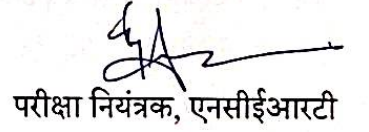 परीक्षा नियंत्रक, एनसीईआरटी